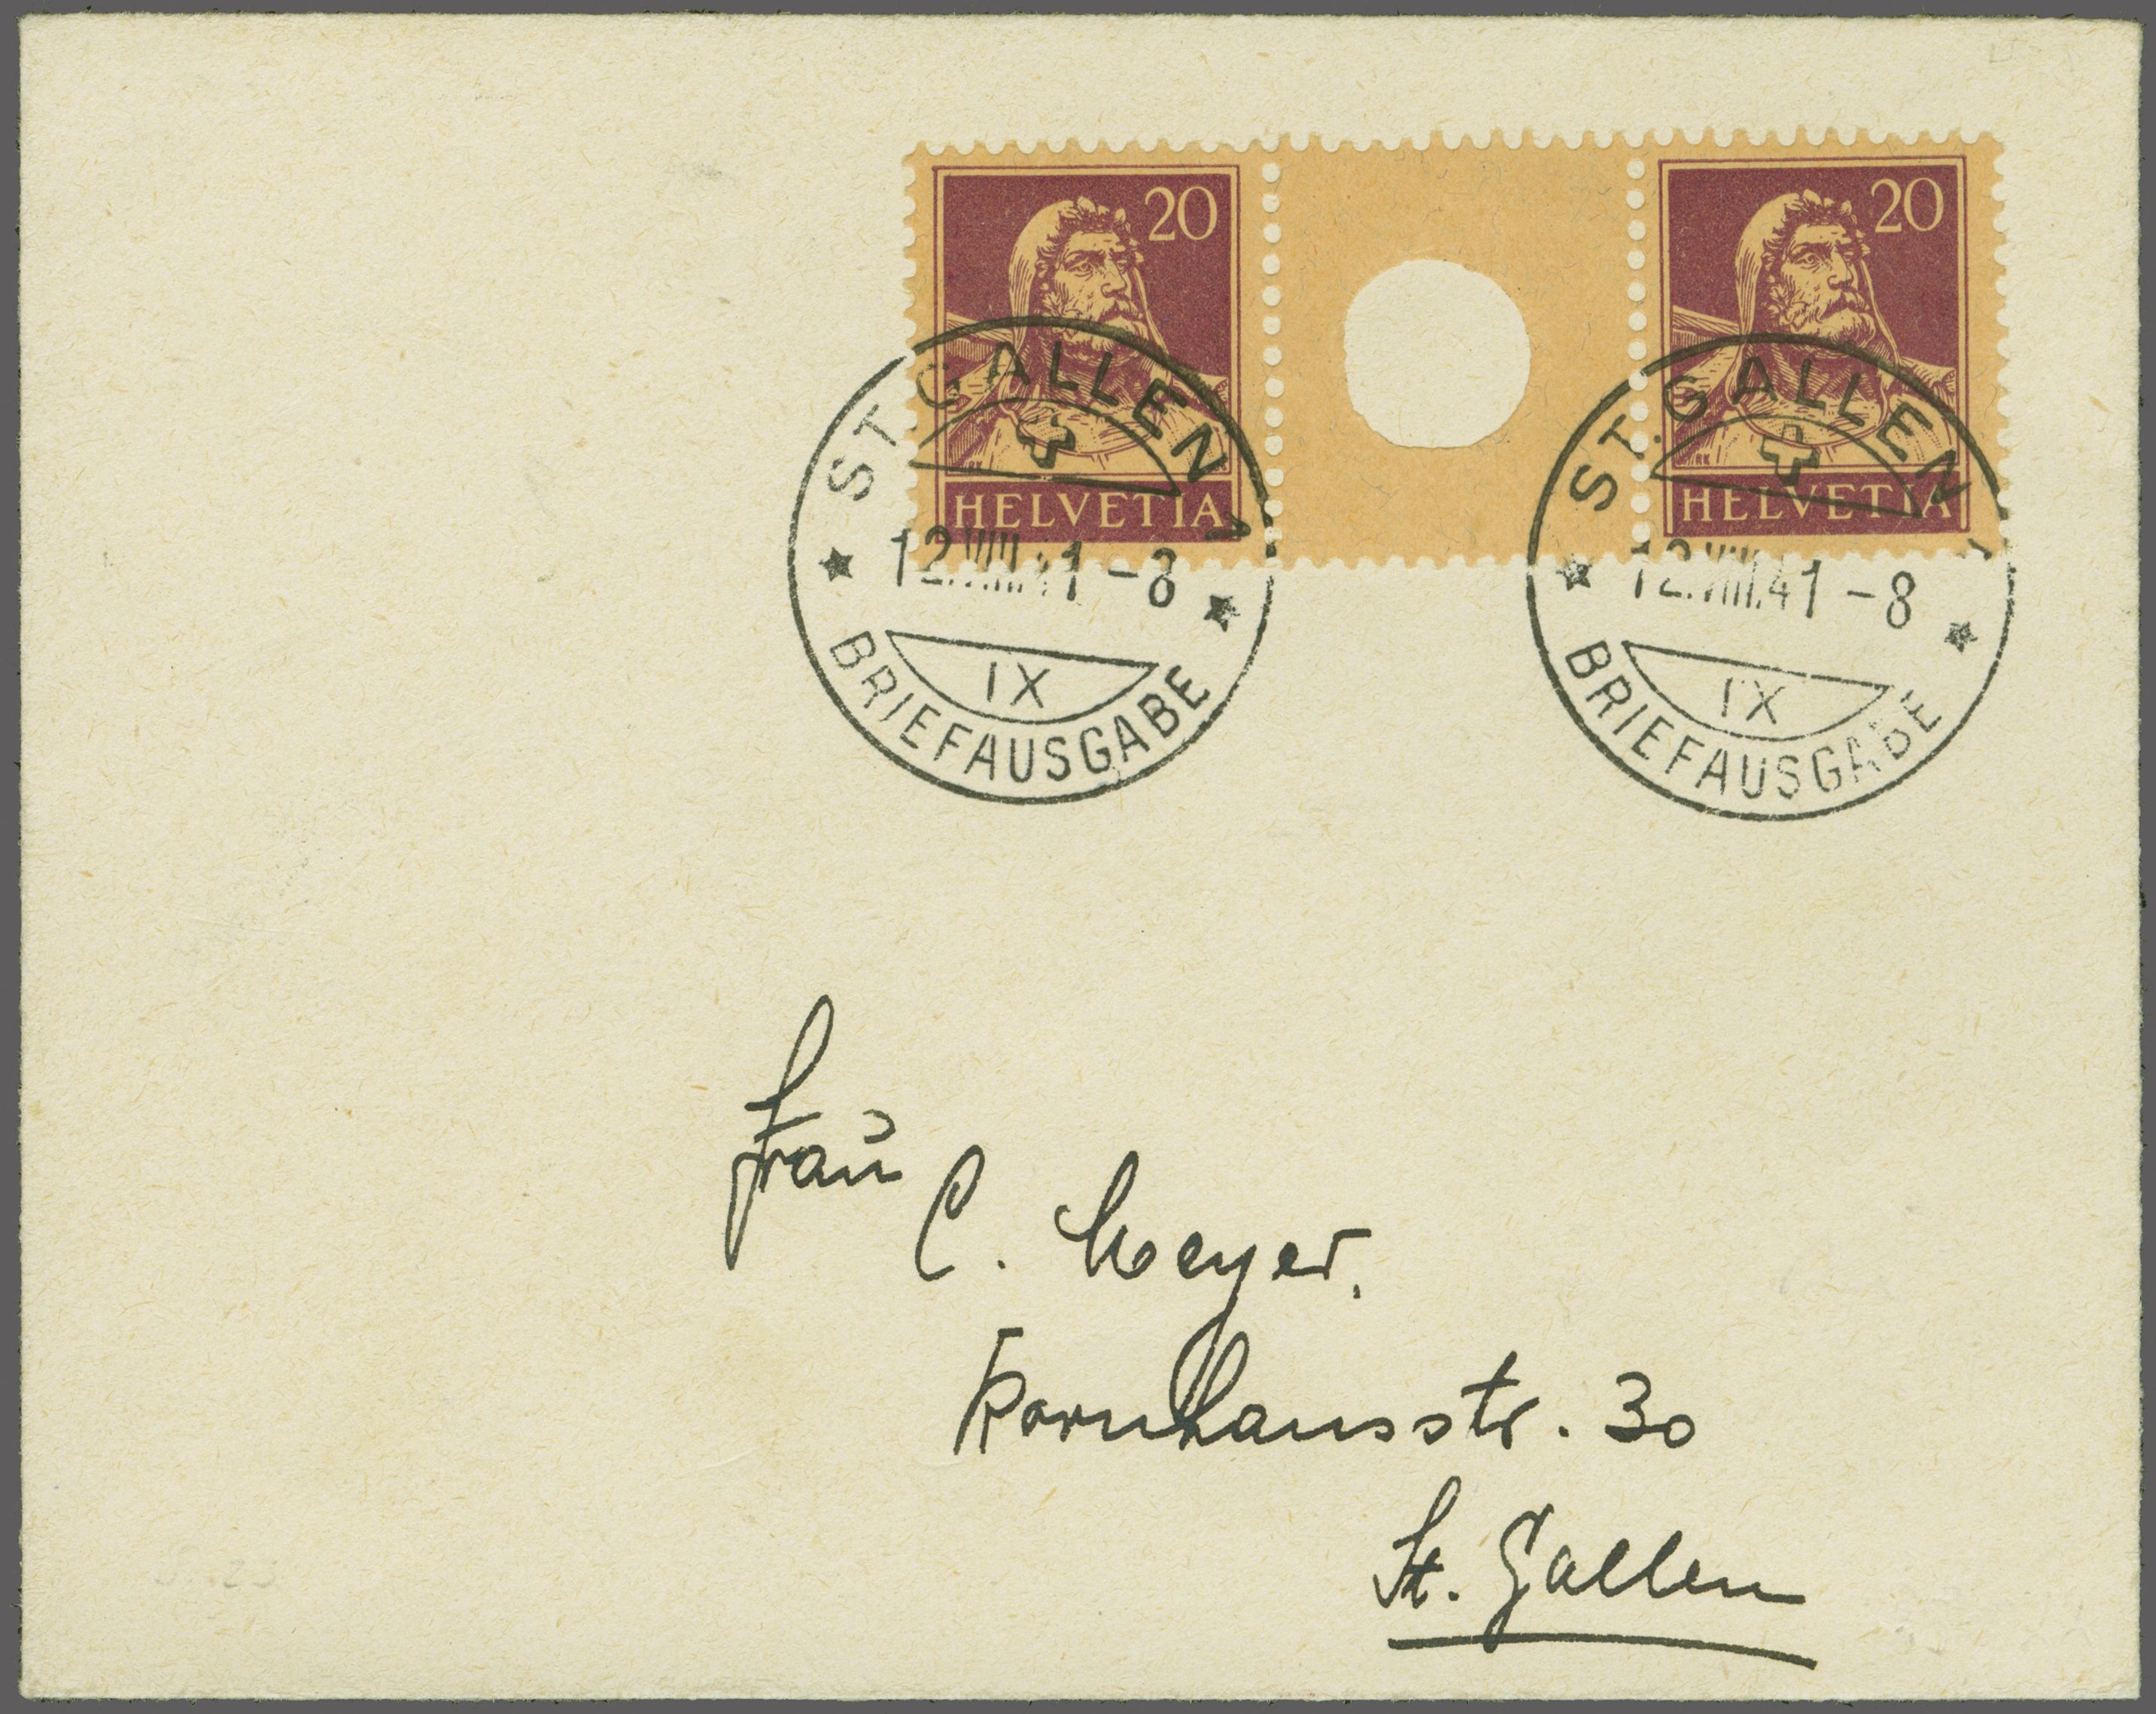 20
20
HELVETIA
HELVETIA
ST. GALLEN 1
12.VIII.41-8
IX
BRIEFAUSGABE
ST. GALLEN 1
12.VIII.41-8
IX
BRIEFAUSGABE
Frau
C. Meyer.
Kornhausstr. 30
St. Gallen